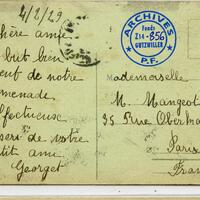 4/2/29
chère amie
but bien
de notre
menade
ffectueuse
de votre
tit ami
Georget
ARCHIVES
Fonds
Z14-856
GUTZWILLER
P.F.
Mademoiselle
M. Mangeot
35 Rue Oberkam
Paris
Fran